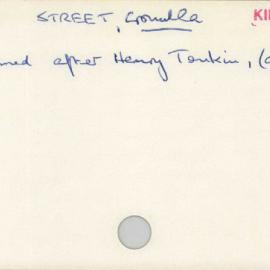 STREET, Cronulla KI
med after Henry Tonkin, (